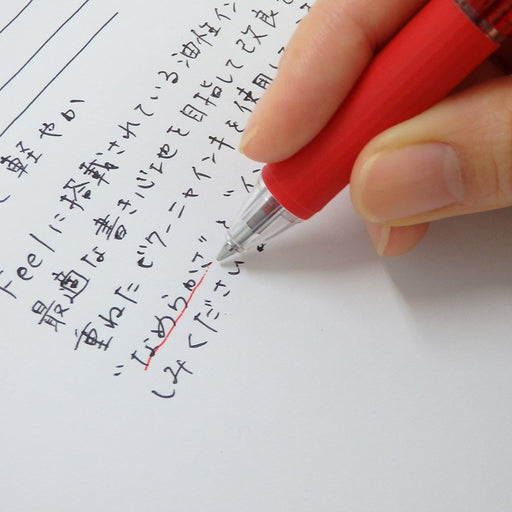 軽やか
Feelに搭載されている油性イン
最適な書き心地を目指して改良を
重ねたビクーニャインキを使用し
"なめらかさ"
しみください